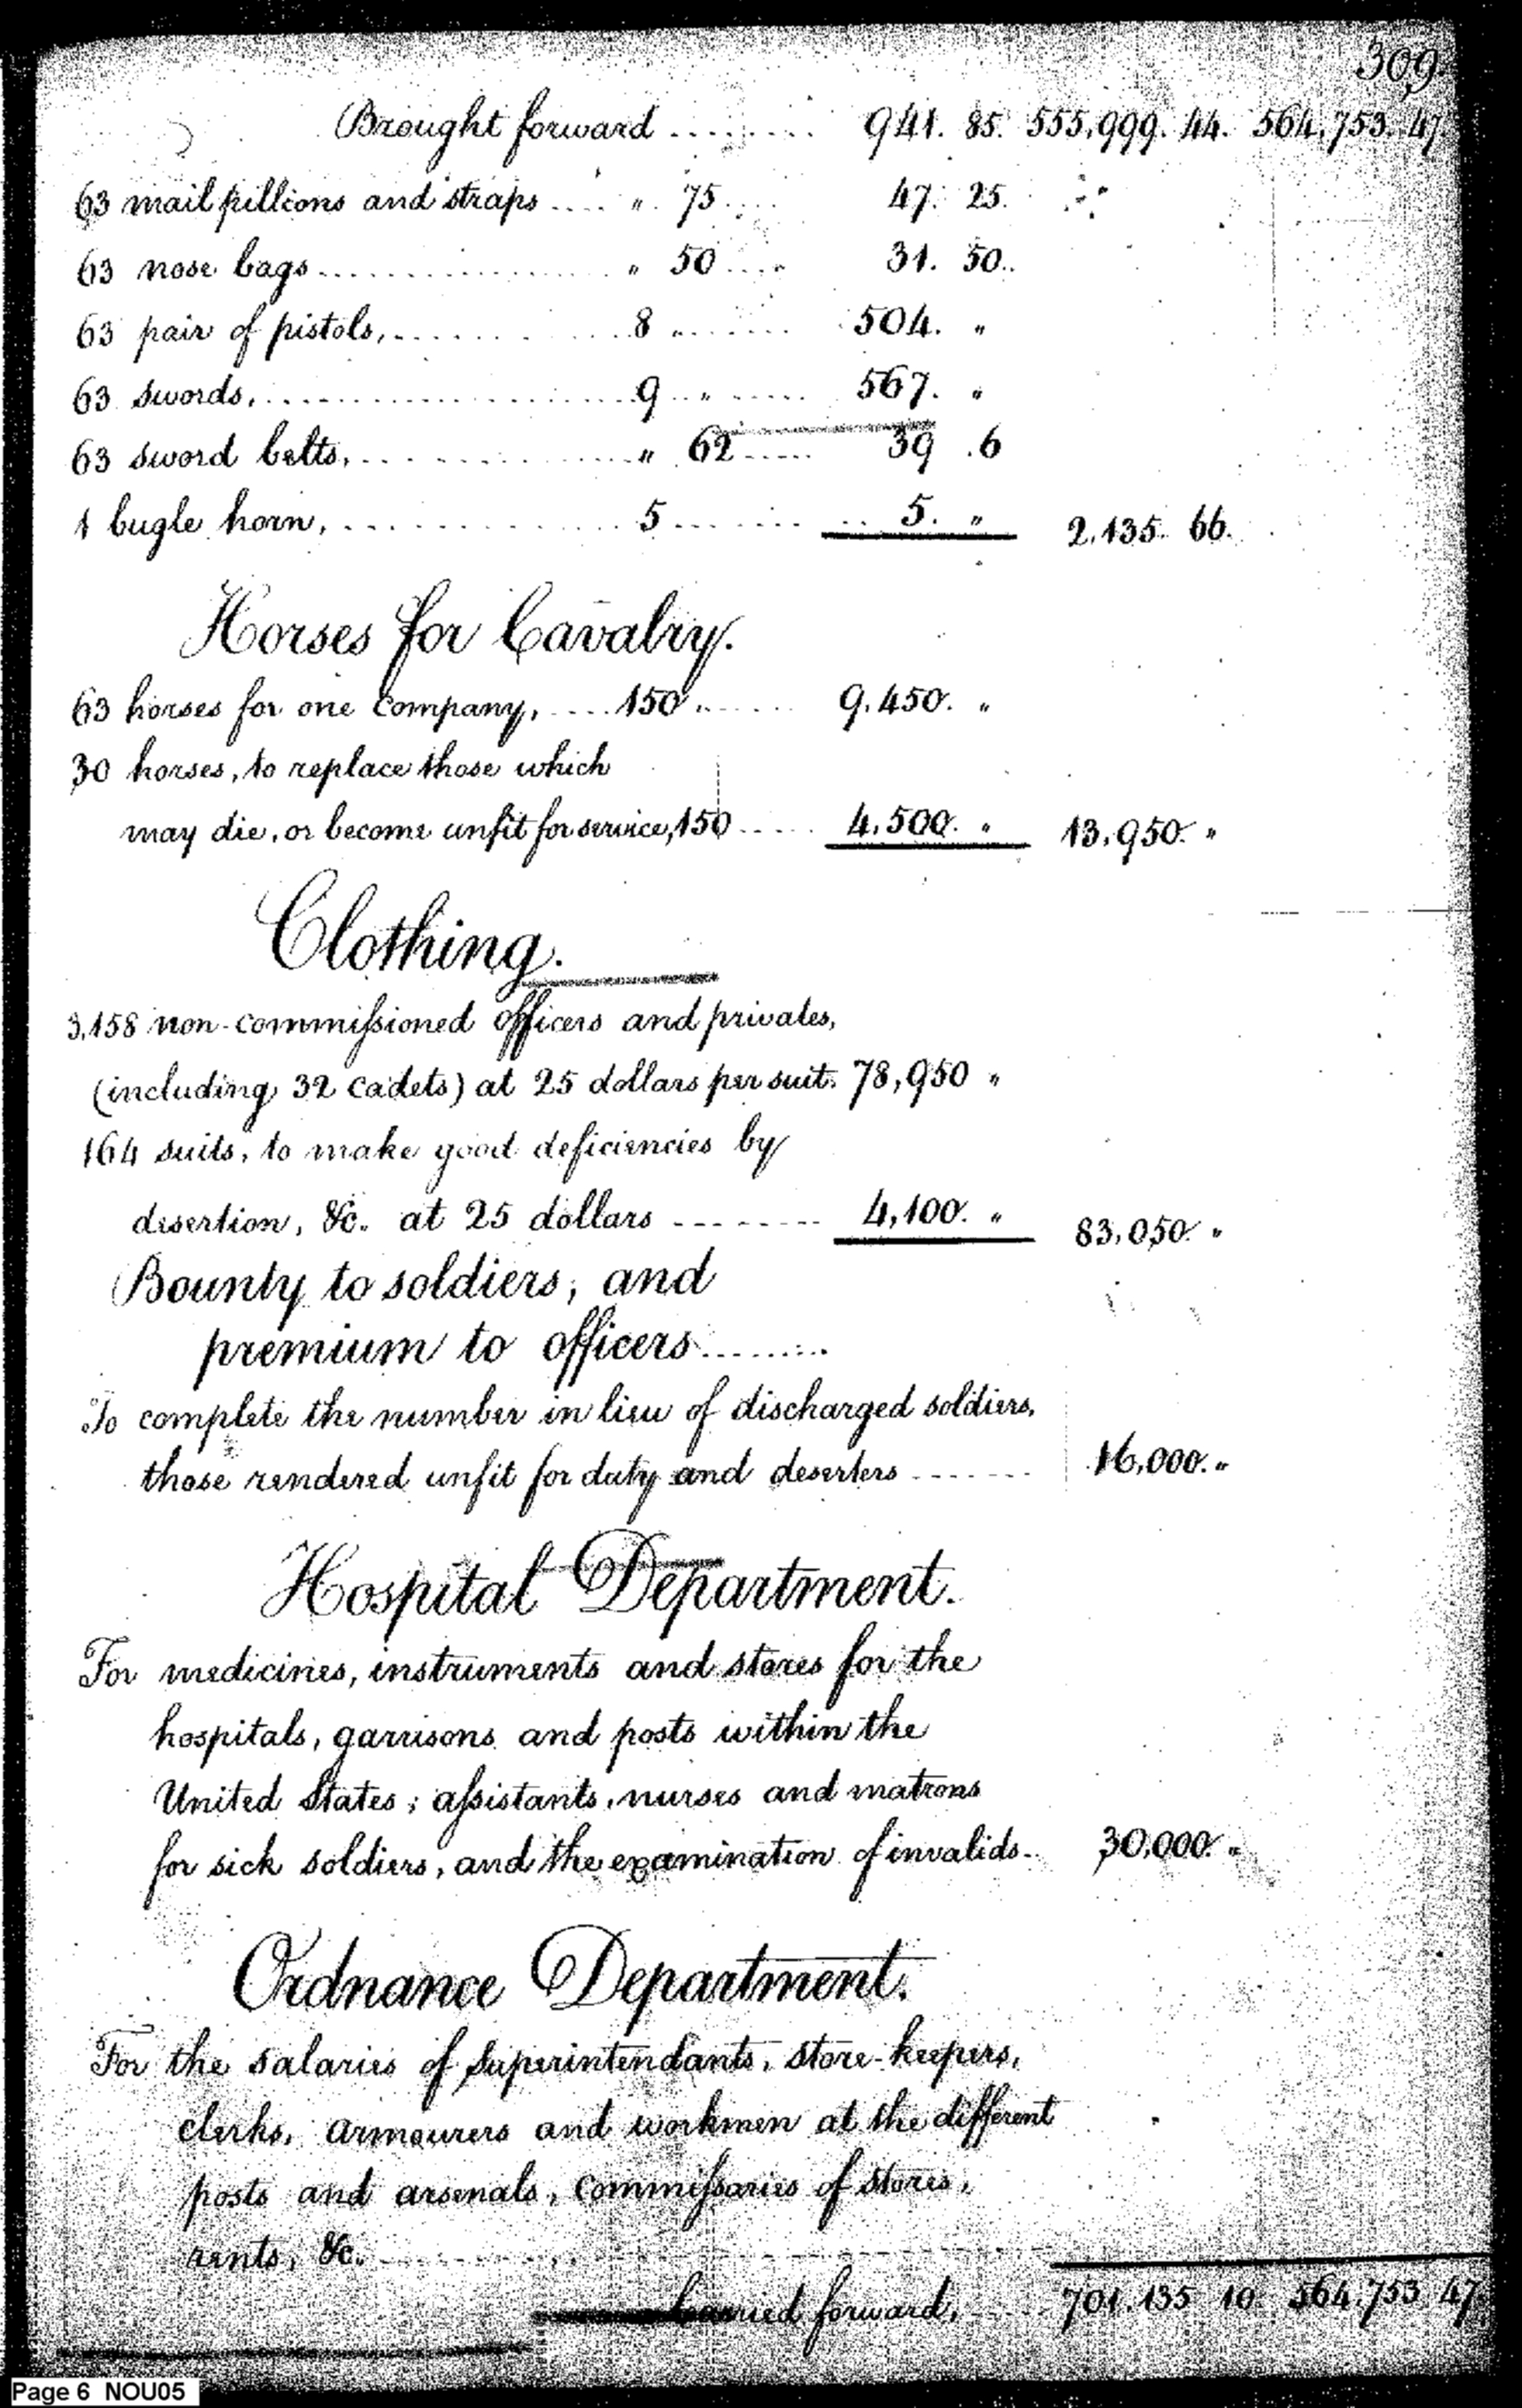 309.
Brought forward ......... 941. 85. 555,999. 44. 564,753. 47.
63 mail pillions and straps .... " 75 .... 47. 25.
63 nose bags .................. " 50 .... 31. 50.
63 pair of pistols, ............ 8 " ....... 504. "
63 swords, .................... 9 " ....... 567. "
63 sword belts, ................ " 62 ..... 39 .6
1 bugle horn, ................. 5 ........ 5. " 2.135. 66.
Horses for Cavalry.
63 horses for one company, .... 150 " ...... 9.450. "
30 horses, to replace those which
may die, or become unfit for service, 150 ..... 4.500. " 13,950. "
Clothing.
3,158 non-commissioned officers and privates,
(including 32 cadets) at 25 dollars per suit. 78,950 "
164 suits, to make good deficiencies by
desertion, &c. at 25 dollars -------- 4,100. " 83,050. "
Bounty to soldiers; and
premium to officers ........
To complete the number in lieu of discharged soldiers,
those rendered unfit for duty and deserters ------- 16,000. "
Hospital Department.
For medicines, instruments and stores for the
hospitals, garrisons and posts within the
United States; assistants, nurses and matrons
for sick soldiers, and the examination of invalids.. 30,000. "
Ordnance Department.
For the salaries of superintendants, store-keepers,
clerks, armourers and workmen at the different
posts and arsenals, commissaries of stores,
rents, &c. --------------------
Carried forward, ...... 701.135 10. 564.753 47.
Page 6 NOU05